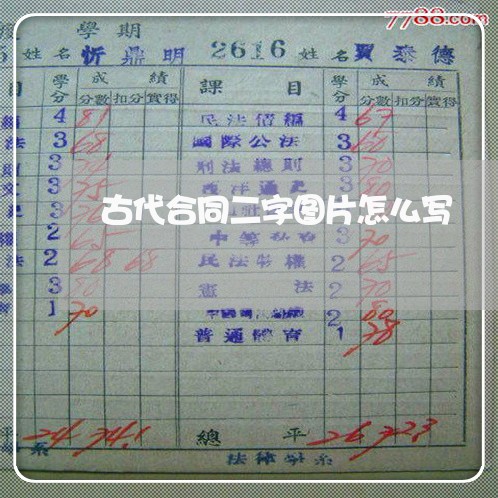 7788.com
學期
姓名 忻鼎明 2616 姓名 賈泰德
目 學分 成績 課目 學分 成績
分數 扣分 實得 分數 扣分 實得
4 81 民法債編 4 67
法 3 68 國際公法 3 60
3 刑法總則 3 70
3 75 西洋通史 3 80
古代合同二字图片怎么写
2 65 3 70
法 2 68 68 民法物權 2 65
3 80 憲法 2 70
1 70 2 80
普通體育 1 78
平 24 74.1 總平 26 72.3
系 法律學系